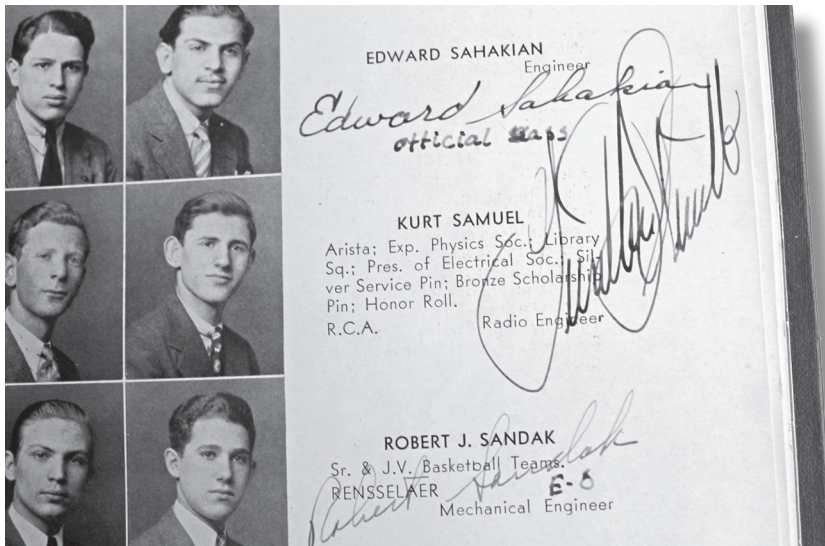 EDWARD SAHAKIAN
Engineer
Edward Sahakian
official
KURT SAMUEL
Arista; Exp. Physics Soc.; Library
Sq.; Pres. of Electrical Soc.; Sil-
ver Service Pin; Bronze Scholarship
Pin; Honor Roll.
R.C.A. Radio Engineer
ROBERT J. SANDAK
Sr. & J.V. Basketball Teams.
RENSSELAER E-8
Mechanical Engineer
Robert Sandak